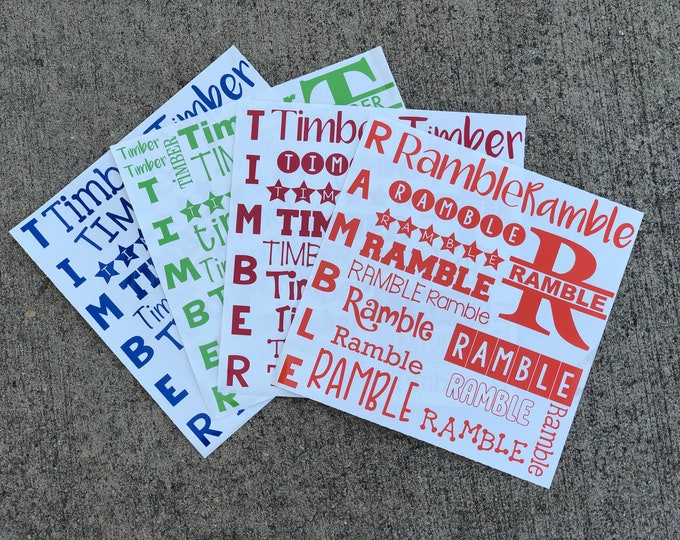 TIMBER
Timb
TIMB
TIM
TIM
Timb
Timber
Timber
TIMBER
Timber
TIMB
T
BER
TIMBER
Timber
Timber
TIM
TIM
TIM
TIMBE
Timbe
RAMBLE
Ramble Ramble
RAMBLE
RAMBLE
RAMBLE
R
RAMBLE
RAMBLE Ramble
Ramble
RAMBLE
Ramble
RAMBLE
RAMBLE
RAMBLE
Ramble